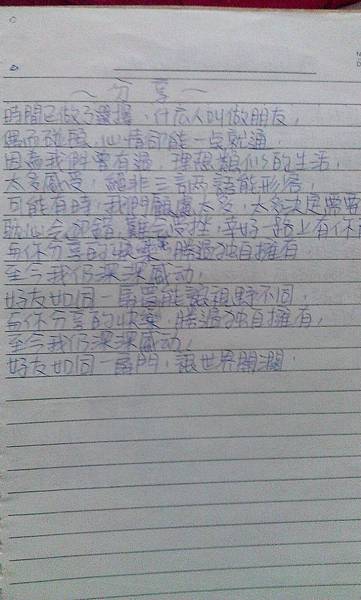 ～分享～
時間已做了選擇，什么人叫做朋友，
偶而碰頭，心情却能一点就通，
因為我們曾有過，理想類似的生活，
太多感受，絕非三言兩語能形容，
可能有時，我們顧慮太多，太多決定需要
耽心会犯錯，難会受挫，幸好一路上有你
与你分享的快樂，勝過独自擁有，
至今我仍深深感动，
好友如同一扇窗能讓視野不同，
与你分享的快樂，勝過独自擁有，
至今我仍深深感动，
好友如同一扇門，讓世界開濶．